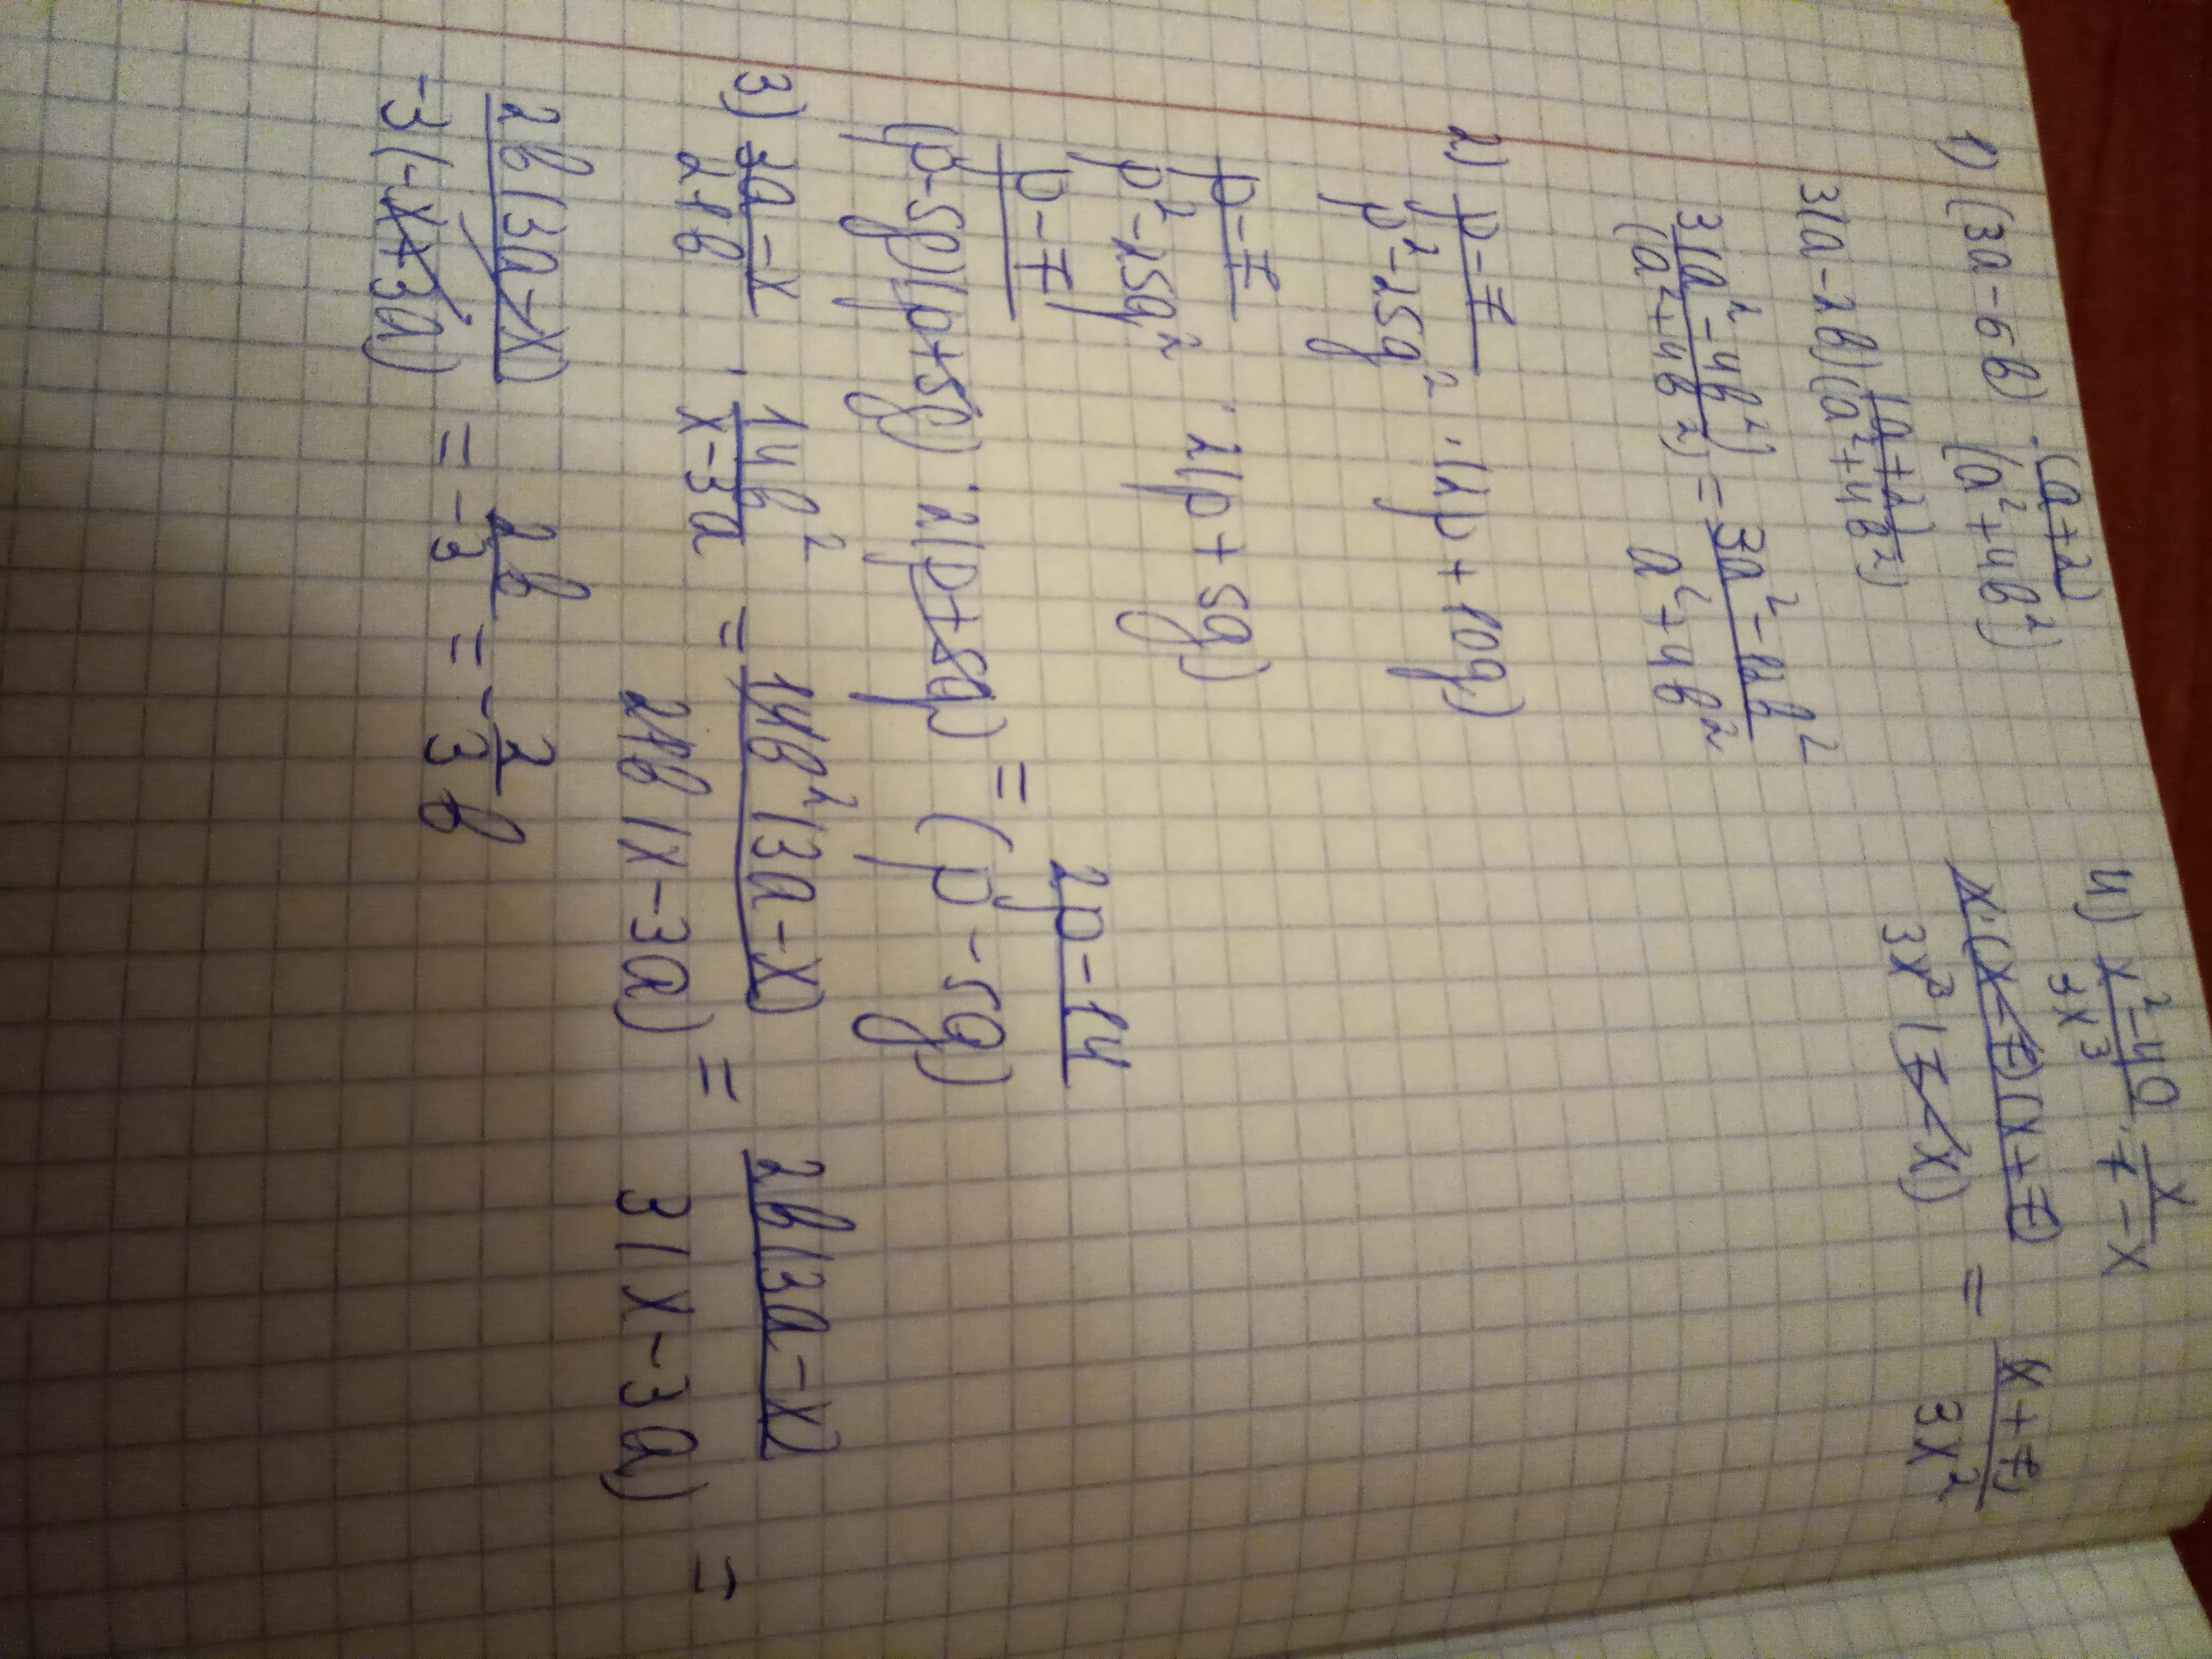 1) (3a-6в) · (a+2) / (a²+4в²)
3(a-2в) (a+2) / (a²+4в²)
3(a²-4в²) / (a²+4в²) = 3a²-12в² / a²+4в²
2) p-7 / p²-25q² · (2p+10q)
p-7 / p²-25q² · 2(p+5q)
p-7 / (p-5q)(p+5q) · 2(p+5q) = 2p-14 / (p-5q)
3) 3a-x / 21в · 14в² / x-3a = 14в²(3a-x) / 21в(x-3a) = 2в(3a-x) / 3(x-3a) =
2в(3a-x) / -3(-x+3a) = 2в / -3 = -2/3 в
4) x²-49 / 3x³ · x / 7-x
x·(x-7)(x+7) / 3x³(7-x) = x+7 / 3x²